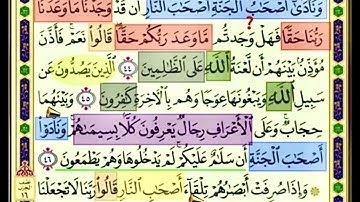 وَنَادَىٰٓ أَصۡحَٰبُ ٱلۡجَنَّةِ أَصۡحَٰبَ ٱلنَّارِ أَن قَدۡ وَجَدۡنَا مَا وَعَدَنَا
رَبُّنَا حَقّٗا فَهَلۡ وَجَدتُّم مَّا وَعَدَ رَبُّكُمۡ حَقّٗاۖ قَالُواْ نَعَمۡۚ فَأَذَّنَ
مُؤَذِّنُۢ بَيۡنَهُمۡ أَن لَّعۡنَةُ ٱللَّهِ عَلَى ٱلظَّٰلِمِينَ ٤٤ ٱلَّذِينَ يَصُدُّونَ عَن
سَبِيلِ ٱللَّهِ وَيَبۡغُونَهَا عِوَجٗا وَهُم بِٱلۡأٓخِرَةِ كَٰفِرُونَ ٤٥ وَبَيۡنَهُمَا
حِجَابٞۚ وَعَلَى ٱلۡأَعۡرَافِ رِجَالٞ يَعۡرِفُونَ كُلَّۢا بِسِيمَىٰهُمۡۚ وَنَادَوۡاْ
أَصۡحَٰبَ ٱلۡجَنَّةِ أَن سَلَٰمٌ عَلَيۡكُمۡۚ لَمۡ يَدۡخُلُوهَا وَهُمۡ يَطۡمَعُونَ ٤٦
۞ وَإِذَا صُرِفَتۡ أَبۡصَٰرُهُمۡ تِلۡقَآءَ أَصۡحَٰبِ ٱلنَّارِ قَالُواْ رَبَّنَا لَا تَجۡعَلۡنَا